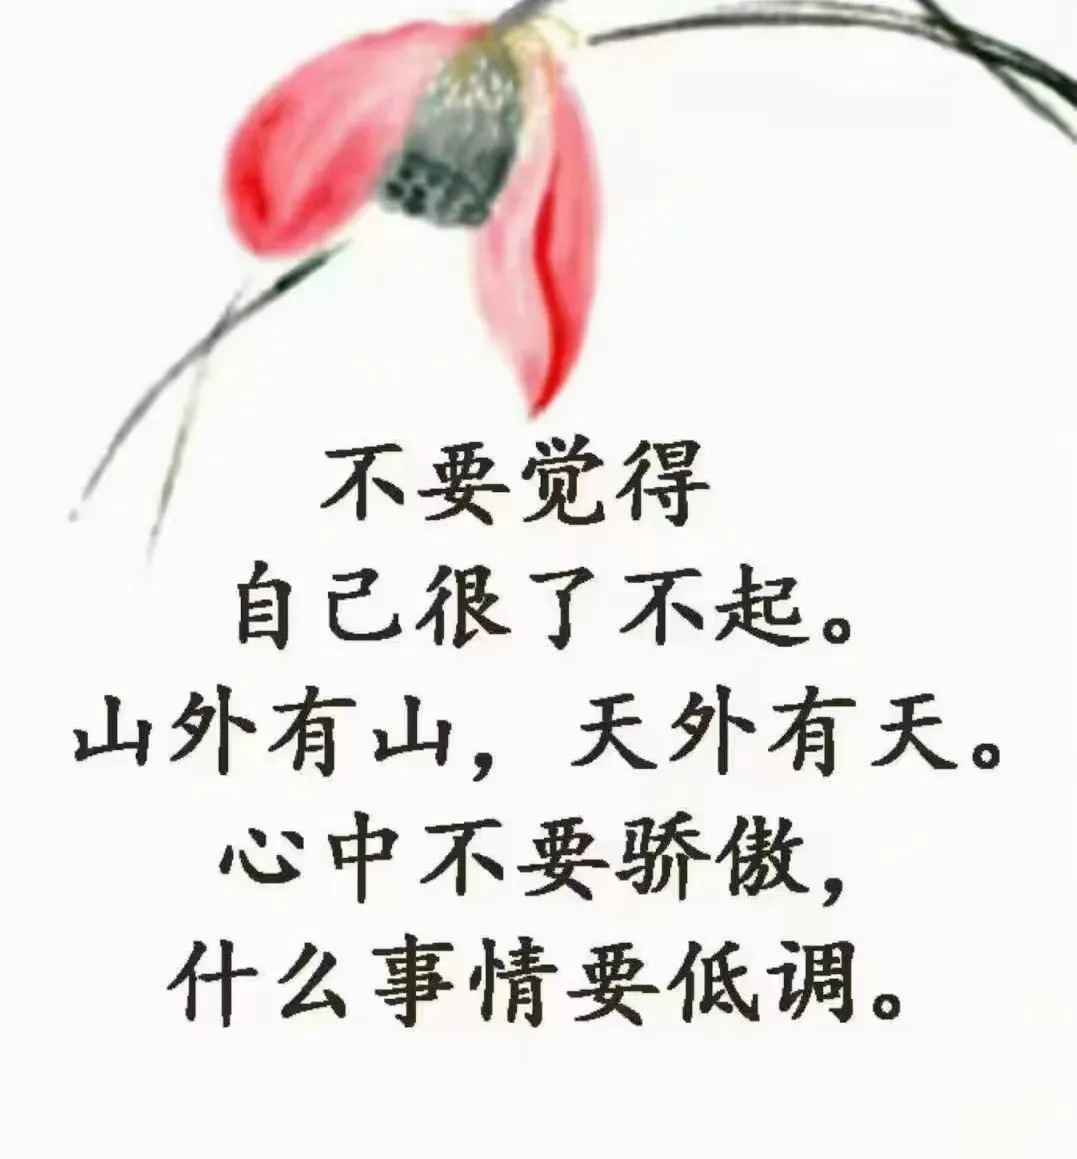 不要觉得
自己很了不起。
山外有山，天外有天。
心中不要骄傲，
什么事情要低调。